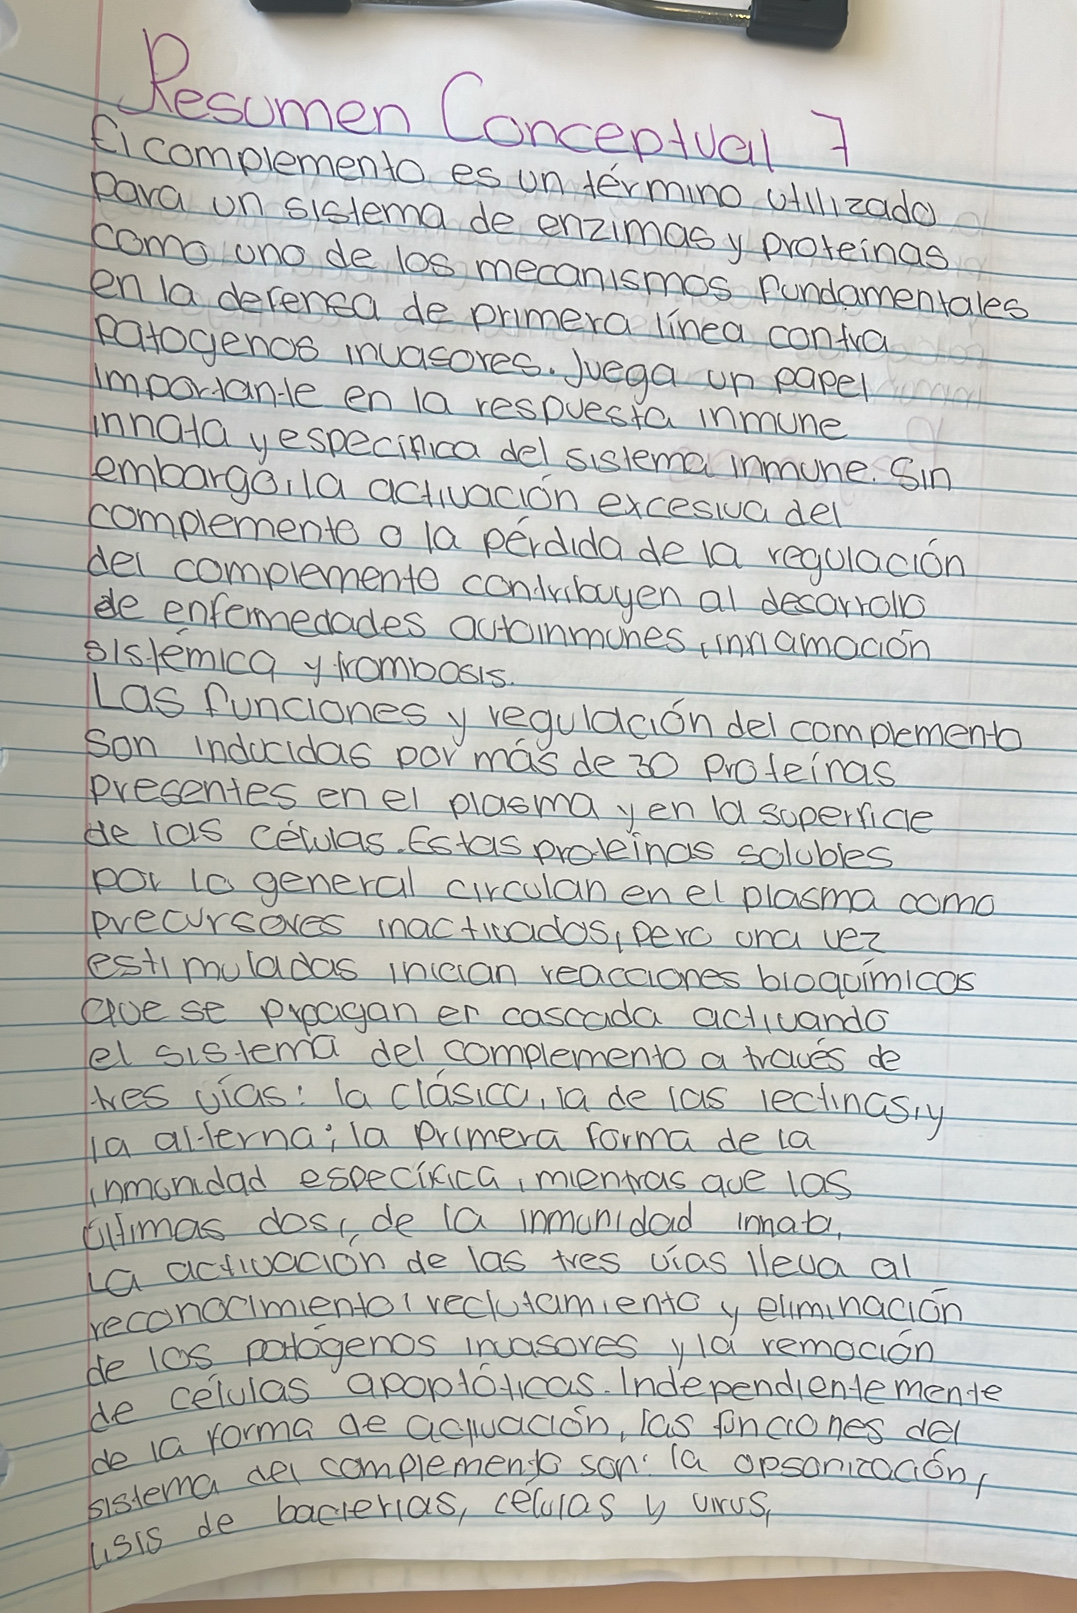 Resumen Conceptual 7
El complemento es un término utilizado
para un sistema de enzimas y proteínas
como uno de los mecanismos fundamentales
en la defensa de primera línea contra
patogenos invasores. Juega un papel
importante en la respuesta inmune
innata y especifica del sistema inmune. Sin
embargo, la activación excesiva del
complemento o la pérdida de la regulación
del complemento contribuyen al desarrollo
de enfermedades autoinmunes, inflamación
sistémica y trombosis.
Las funciones y regulación del complemento
son inducidas por más de 30 proteínas
presentes en el plasma y en la superficie
de las células. Estas proteínas solubles
por lo general circulan en el plasma como
precursores inactivados, pero una vez
estimuladas inician reacciones bioquímicas
que se propagan en cascada activando
el sistema del complemento a través de
tres vías: la clásica, la de las lectinas, y
la alterna; la primera forma de la
inmunidad específica, mientras que las
últimas dos, de la inmunidad innata,
La activación de las tres vías lleva al
reconocimiento, reclutamiento y eliminación
de los patógenos invasores y la remoción
de células apoptóticas. Independientemente
de la forma de activación, las funciones del
sistema del complemento son: la opsonización,
lisis de bacterias, células y virus,